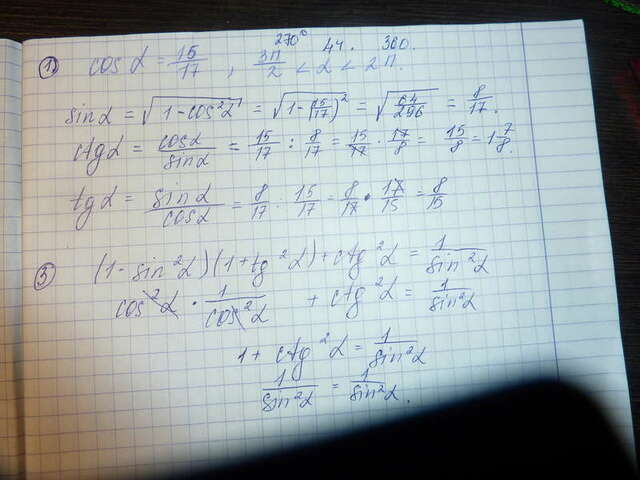 270° 4ч. 360.
1) cos α = 15/17, 3π/2 < α < 2π.
sin α = √(1 - cos²α) = √(1 - (15/17)²) = √(64/296) = 8/17.
ctg α = cos α / sin α = 15/17 : 8/17 = 15/17 · 17/8 = 15/8 = 1 7/8.
tg α = sin α / cos α = 8/17 : 15/17 = 8/17 · 17/15 = 8/15
3) (1 - sin²α)(1 + tg²α) + ctg²α = 1/sin²α
cos²α · 1/cos²α + ctg²α = 1/sin²α
1 + ctg²α = 1/sin²α
1/sin²α = 1/sin²α.